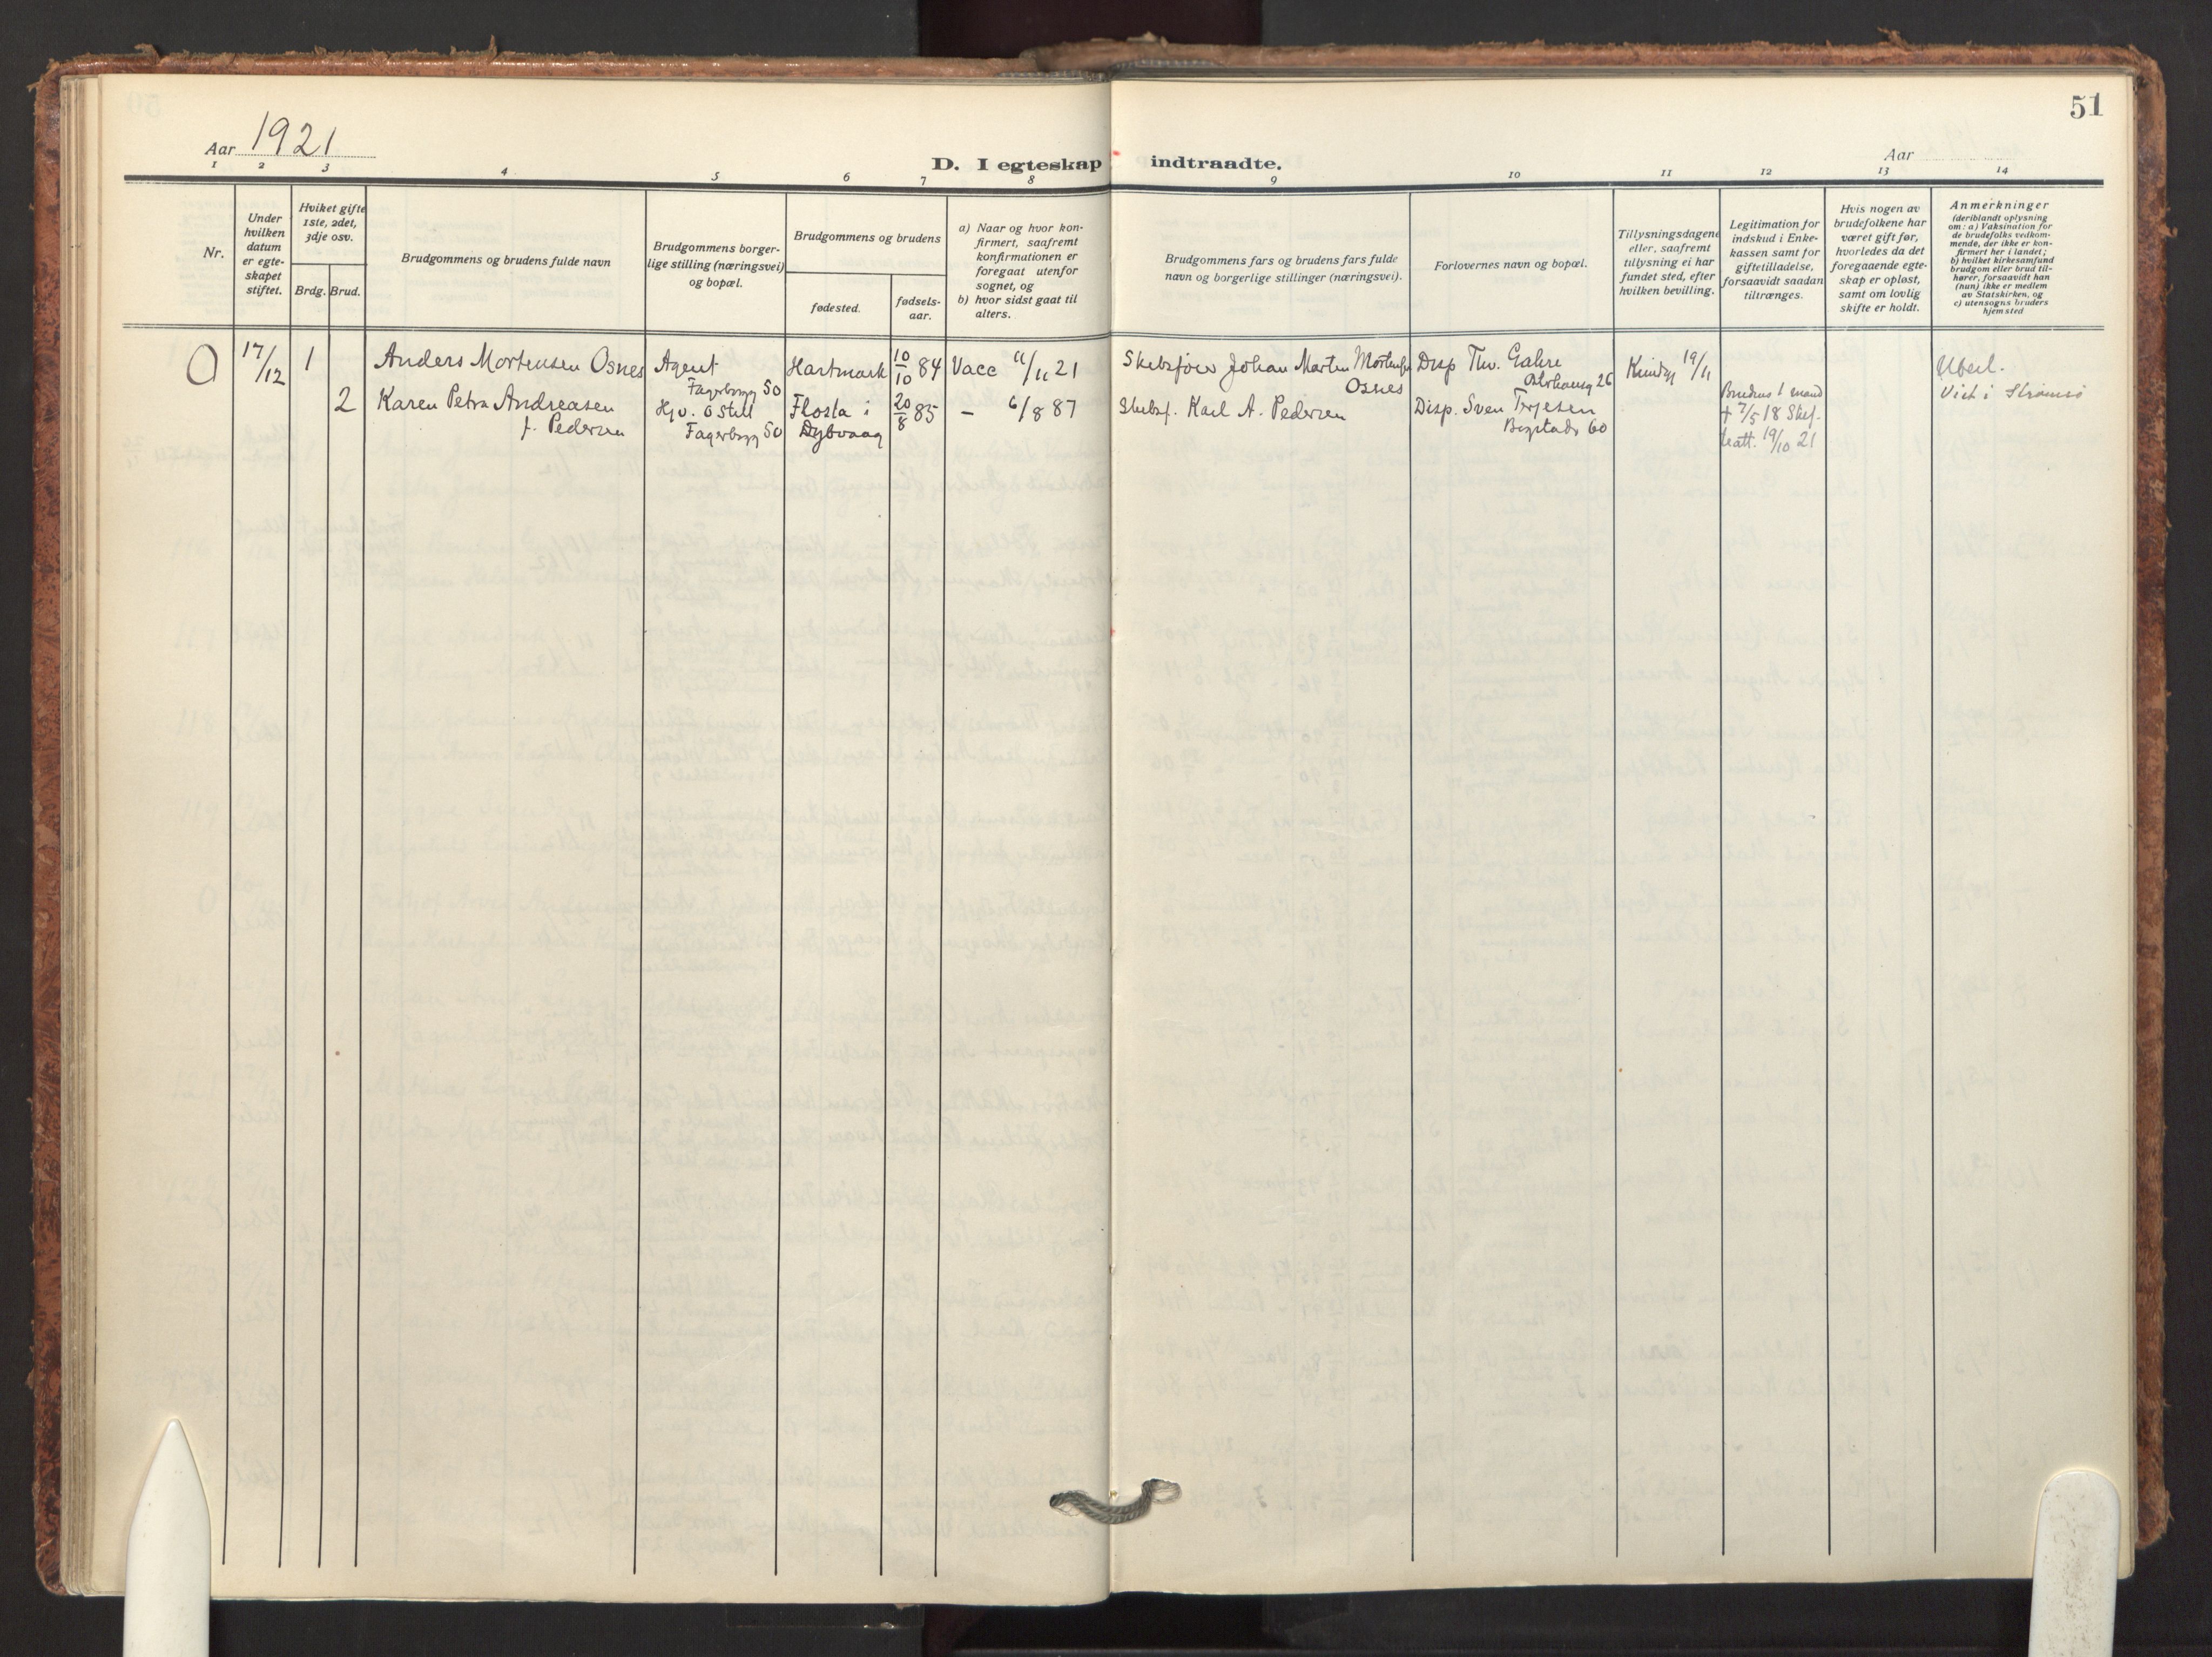 51
Aar 1921
Aar
D. I egteskap indtraadte.
1 2 3 4 5 6 7 8 9 10 11 12 13 14
Nr.
Under
hvilken
datum
er egte-
skapet
stiftet.
Hviket gifte
1ste, 2det,
3dje osv.
Brdg. Brud.
Brudgommens og brudens fulde navn
Brudgommens borger-
lige stilling (næringsvei)
og bopæl.
Brudgommens og brudens
fødested.
fødsels-
aar.
a) Naar og hvor kon-
firmert, saafremt
konfirmationen er
foregaat utenfor
sognet, og
b) hvor sidst gaat til
alters.
Brudgommens fars og brudens fars fulde
navn og borgerlige stillinger (næringsvei).
Forlovernes navn og bopæl.
Tillysningsdagene
eller, saafremt
tillysning ei har
fundet sted, efter
hvilken bevilling.
Legitimation for
indskud i Enke-
kassen samt for
giftetilladelse,
forsaavidt saadan
tiltrænges.
Hvis nogen av
brudefolkene har
været gift før,
hvorledes da det
foregaaende egte-
skap er opløst,
samt om lovlig
skifte er holdt.
Anmerkninger
(deriblandt oplysning
om: a) Vaksination for
de brudefolks vedkom-
mende, der ikke er kon-
firmert her i landet;
b) hvilket kirkesamfund
brudgom eller brud til-
hører, forsaavidt han
(hun) ikke er medlem
av Statskirken, og
c) utensogns bruders
hjemsted
0 17/12 1 Anders Mortensen Osnes Agent Hartmark 10/10 84 Vacc 11/11 21 Skibsfører Johan Martin Mortensen Disp Thv. 19/11
Fagerborgg 50 Osnes 26
2 Karen Petra Andreasen Hjv. o Still Flosta i 20/8 85 - 6/8 87 Skibsf. Karl A. Pedersen Disp. Sven Terjesen Brudens 1 mand Viet i Strømsø
f. Pedersen Fagerborgg 50 Dybvaag Bogstadv 60 + 7/5 18 Skif.
19/10 21